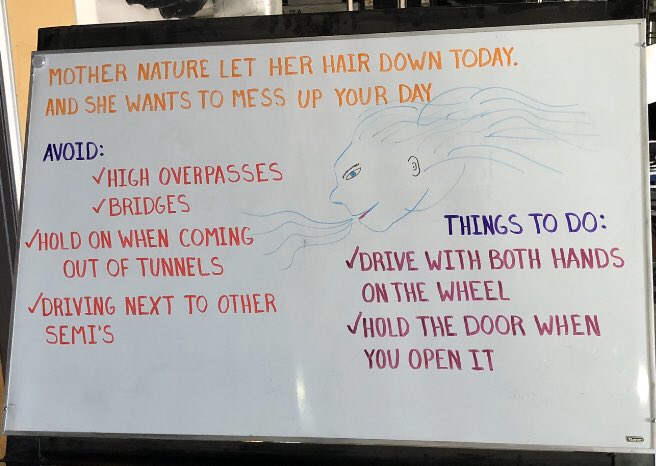 MOTHER NATURE LET HER HAIR DOWN TODAY.
AND SHE WANTS TO MESS UP YOUR DAY
AVOID:
✓HIGH OVERPASSES
✓BRIDGES
✓HOLD ON WHEN COMING
OUT OF TUNNELS
✓DRIVING NEXT TO OTHER
SEMI'S
THINGS TO DO:
✓DRIVE WITH BOTH HANDS
ON THE WHEEL
✓HOLD THE DOOR WHEN
YOU OPEN IT